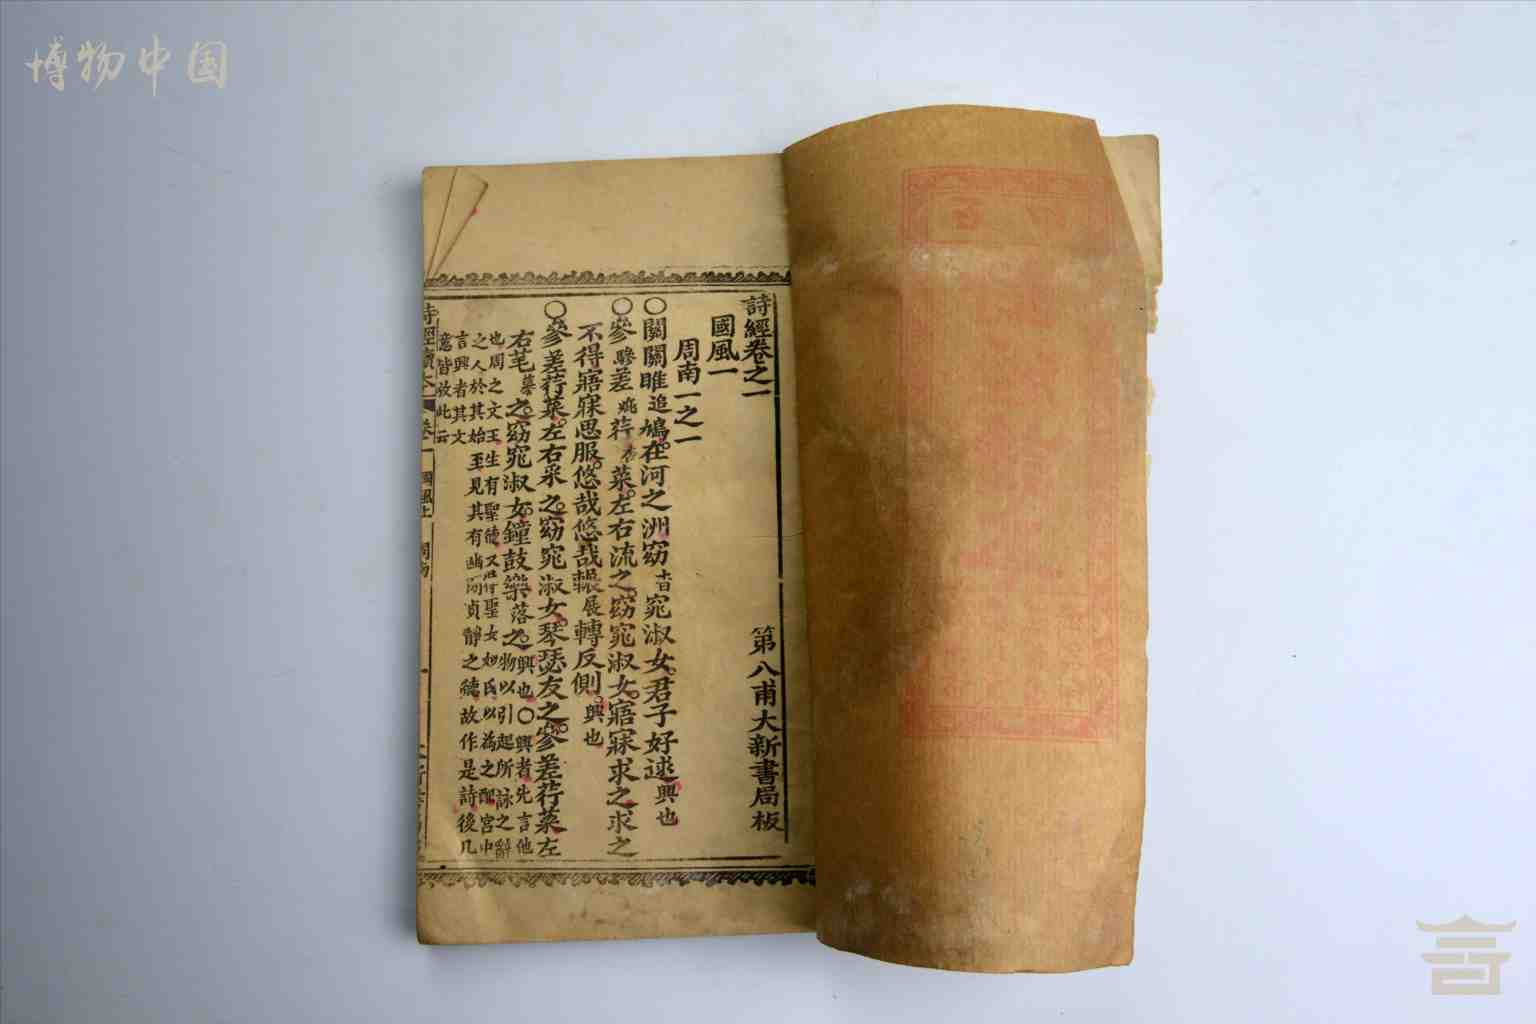 博物中国
詩經卷之一
第八甫大新書局板
國風一
周南一之一
○關關雎追鳩在河之洲窈杳窕淑女君子好逑興也
○參駸差姚荇杏菜左右流之窈窕淑女寤寐求之求之
不得寤寐思服悠哉悠哉輾展轉反側興也
○參差荇菜左右采之窈窕淑女琴瑟友之參差荇菜左
右芼菶之窈窕淑女鐘鼓樂落之興也○興者先言他
物以引起所詠之辭
也周之文王生有聖德又得聖女姒氏以為之配宮中
之人於其始至見其有幽閒貞靜之德故作是詩後凡
言興者其文
意皆放此云
詩經讀本
卷一
國風上
周南